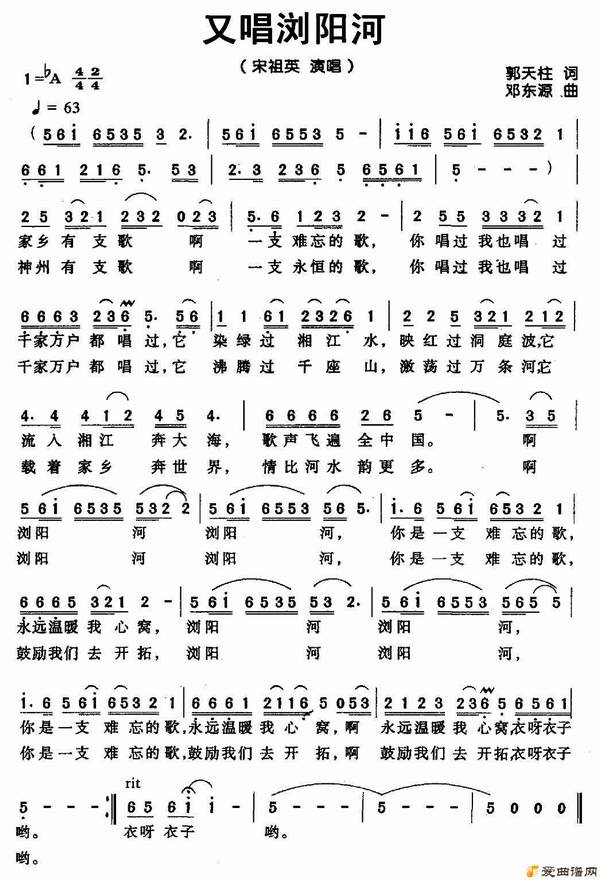 又唱浏阳河
（宋祖英 演唱）
1=♭A 4/4 2/4
郭天柱 词
邓东源 曲
♩= 63
( 5 6 i 6 5 3 5 3 2. | 5 6 i 6 5 3 5 5 - | i i 6 5 6 i 6 5 3 2 1
6 6 1 2 1 6 5. 5 3 | 2. 3 2 3 6 6 5 6 1 | 5 - - - )
2 5 3 2 1 2 3 2 0 2 3 | 5. 6 1 2 3 2 - | 2 5 5 5 3 3 3 2 1
家乡有支歌 啊 一支难忘的歌， 你唱过我也唱 过
神州有支歌 啊 一支永恒的歌， 你唱过我也唱 过
6 6 6 3 2 3 6 5. 5 6 | 1 1 6 1 2 3 - | 2 2 5 3 2 1 2 1 2
千家万户都 唱过，它 染绿过 湘江水，映红过洞庭波，它
千家万户都 唱过，它 沸腾过 千座山，激荡过万条河它
4. 4 4 1 2 4 5 4. | 6 6 6 2 2 6 | 5 - | 5. 3 5
流入湘江 奔大海， 歌声飞遍 全中国。 啊
载着家乡 奔世界， 情比河水 韵更多。 啊
5 6 i 6 5 3 5 3 2 2 | 5 6 i 6 5 3 5 5 - | i. 6 5 6 i 6 5 3 2 1
浏阳 河 浏阳 河， 你是一支 难忘的歌，
浏阳 河 浏阳 河， 你是一支 难忘的歌，
6 6 6 5 3 2 1 2 - | 5 6 i 6 5 3 5 3 2. | 5 6 i 6 5 6 5 5
永远温暖我心窝， 浏阳 河 浏阳 河，
鼓励我们去开拓， 浏阳 河 浏阳 河，
i. 6 5 6 i 6 5 3 2 1 | 6 6 6 1 2 1 1 6 5 0 5 3 | 2 1 2 3 2 3 6 5 6 5 6
你是一支 难忘的歌，永远温暖我心 窝，啊 永远温暖我 心窝衣呀衣子
你是一支 难忘的歌，鼓励我们去开 拓，啊 鼓励我们去 开拓衣呀衣子
rit
5 - - - :|| 6 5 6 i i | 5 - - - | 5 0 0 0 ||
哟。 衣呀 衣子 哟。
哟。
爱曲谱网